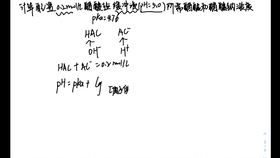 计算配置0.2mol/L醋酸盐缓冲液(pH=5.0)所需醋酸和醋酸钠浓度
pka=4.76
HAC AC⁻
↑ ↑
OH⁻ H⁺
HAC + AC⁻ = 0.2mol/L
pH = pka + lg